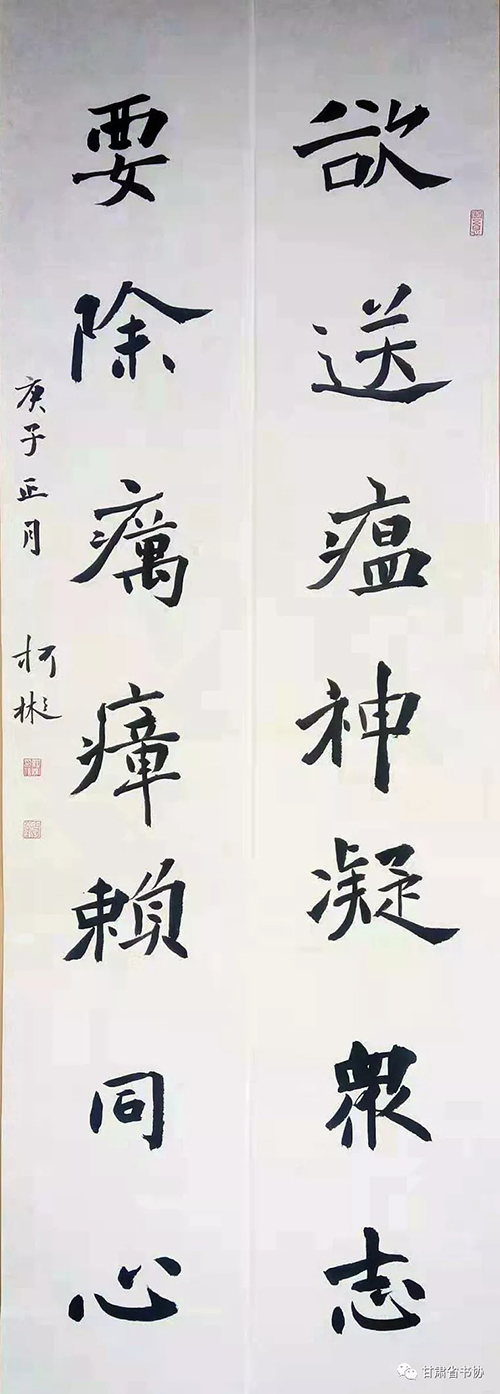 欲送瘟神凝眾志
要除癘瘴賴同心
庚子正月
柯彬
甘肃省书协